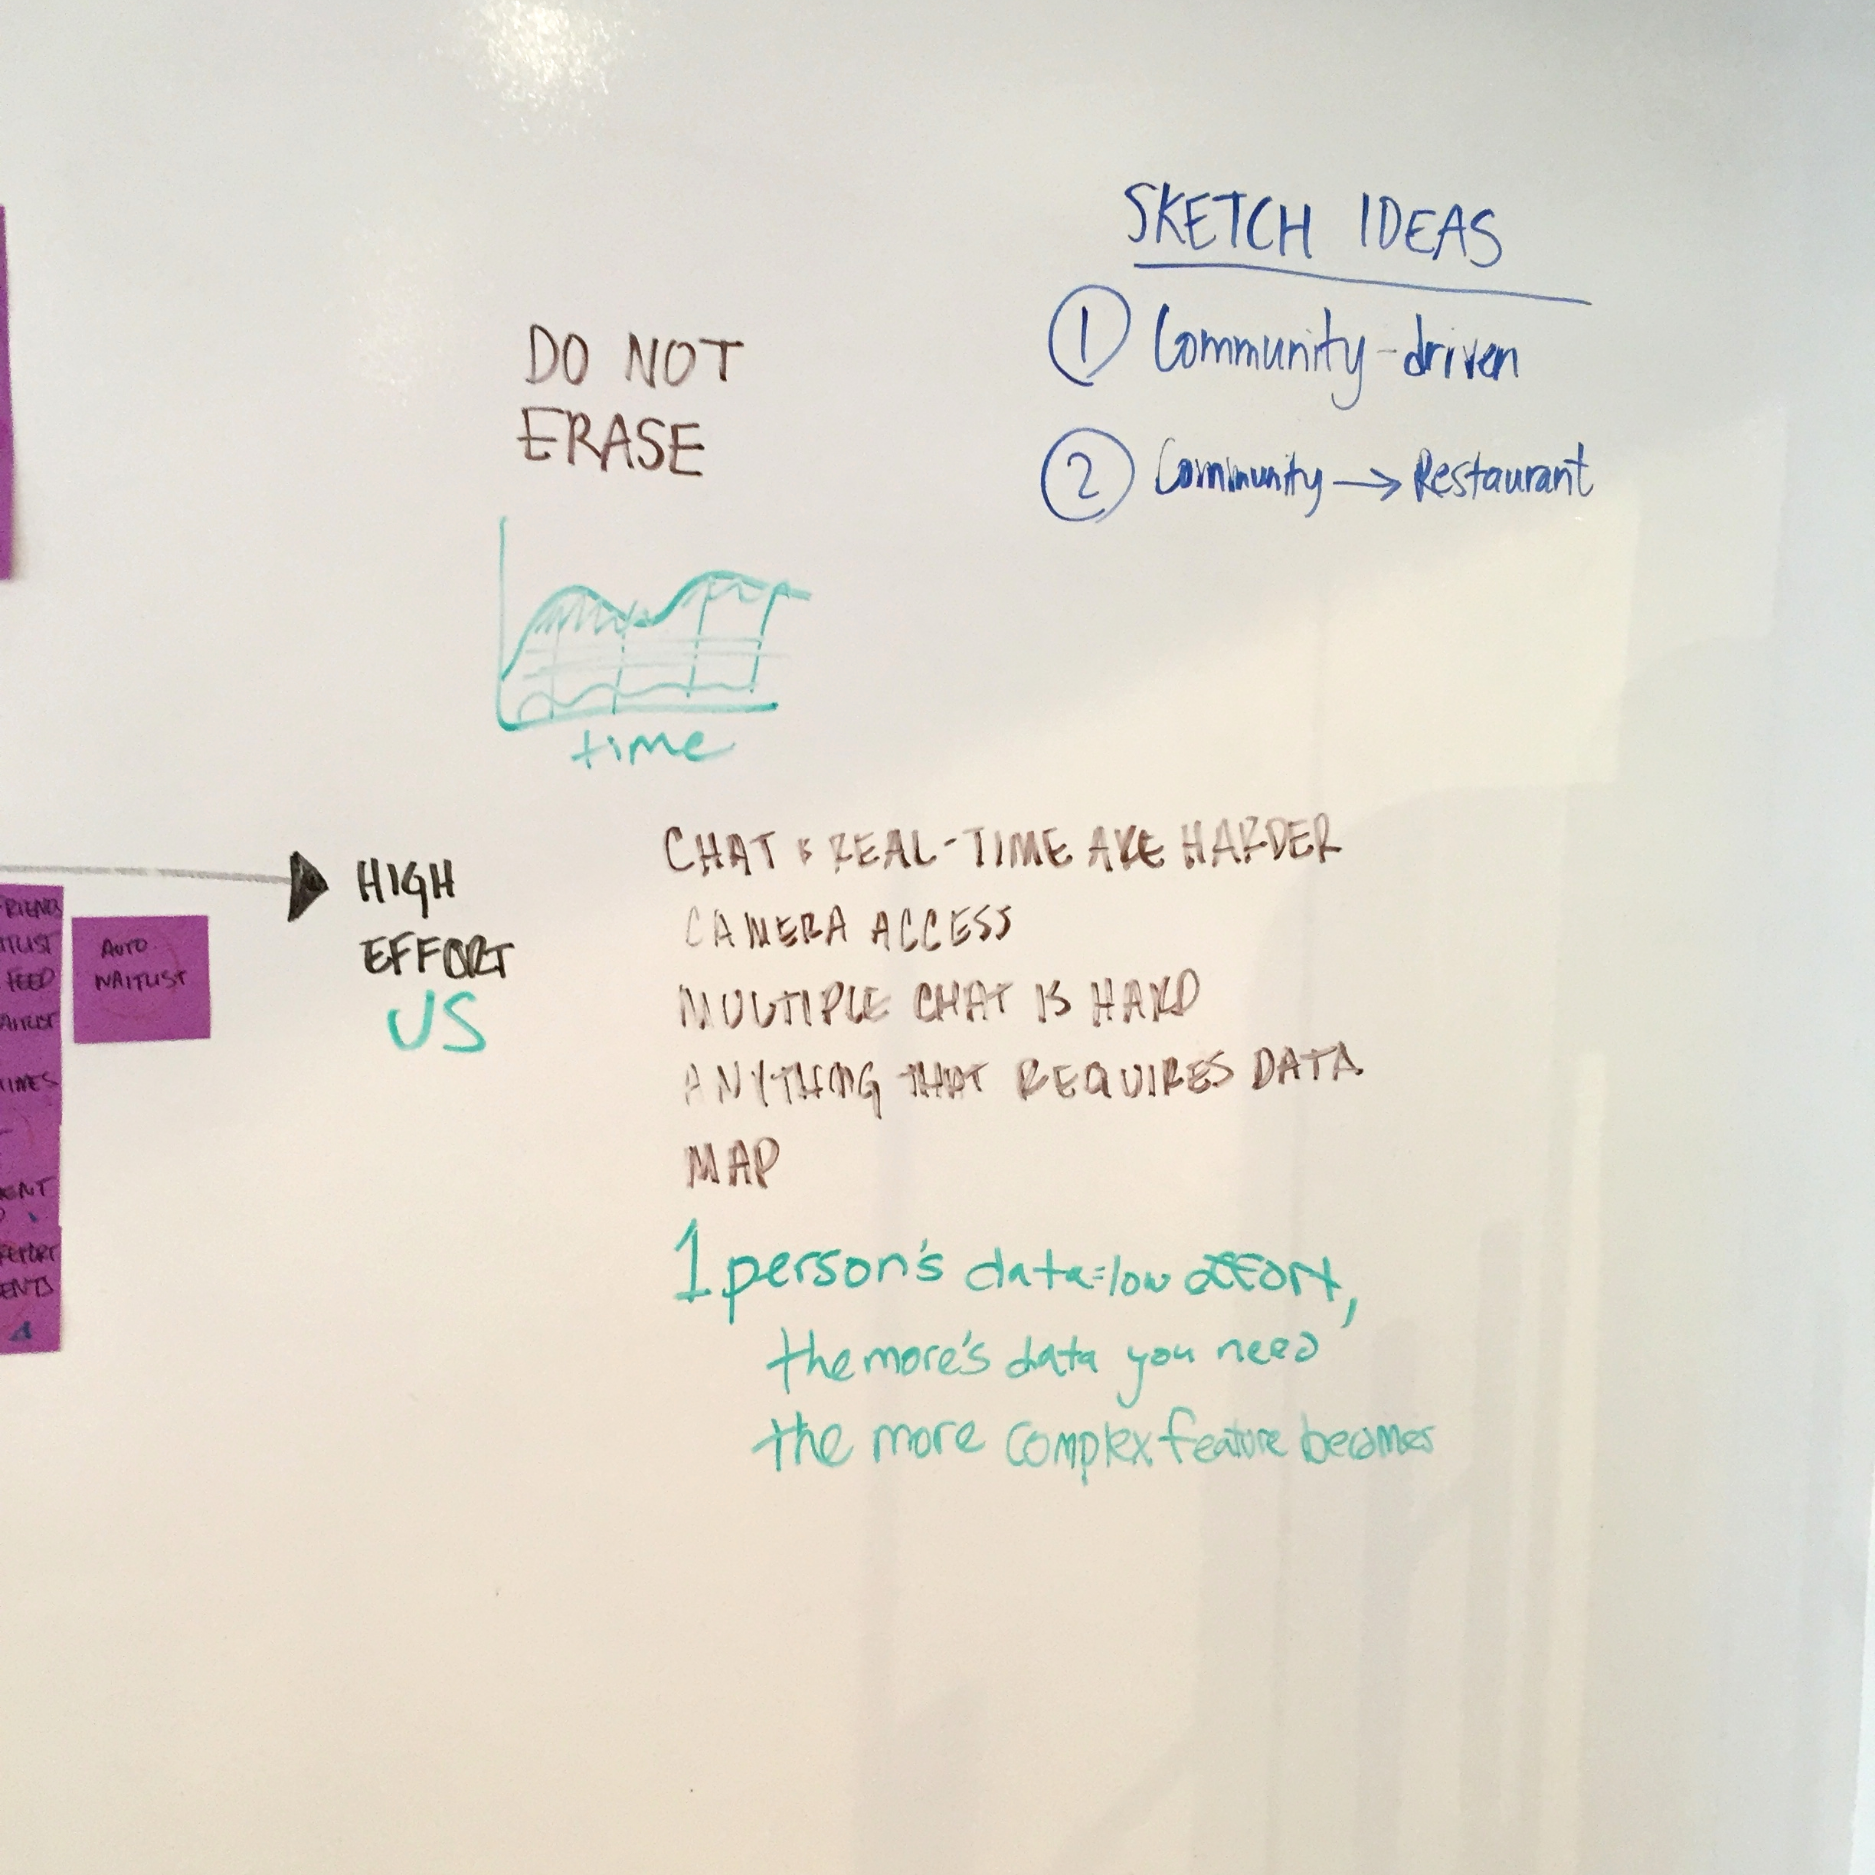 SKETCH IDEAS
1 Community-driven
2 Community → Restaurant
DO NOT
ERASE
time
HIGH
EFFORT
US
CHAT & REAL-TIME ARE HARDER
CAMERA ACCESS
MULTIPLE CHAT IS HARD
ANYTHING THAT REQUIRES DATA
MAP
1 person's data=low effort,
the more's data you need
the more complex feature becomes
AUTO
WAITLIST
FEED